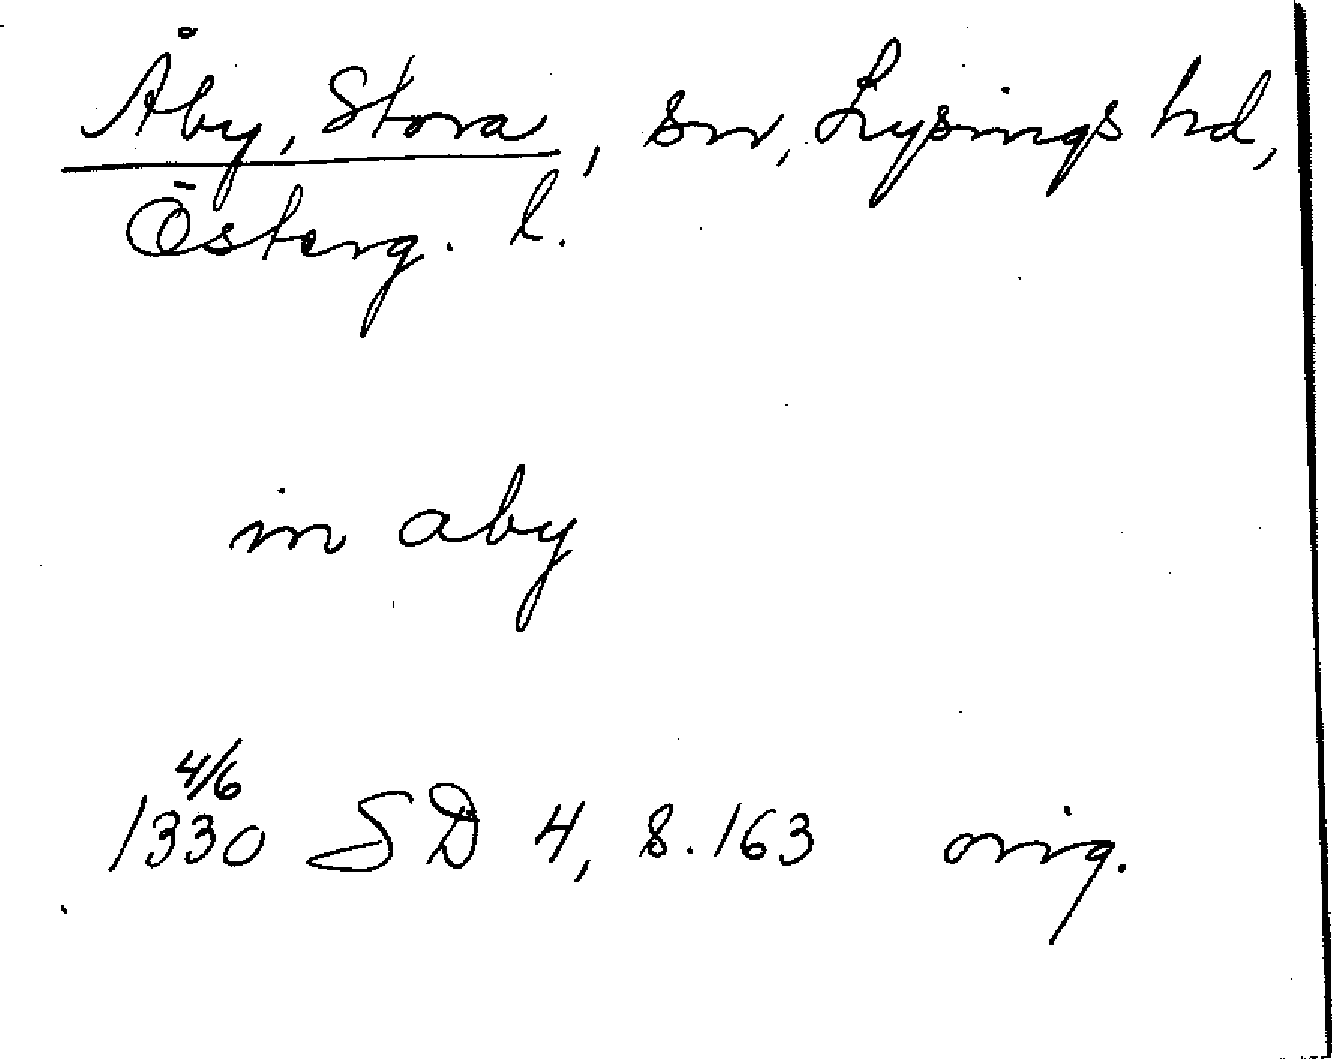 Åby, Stora, sn, Lysings hd,
Österg. l.
in aby
4/6
1330 SD 4, s. 163 orig.